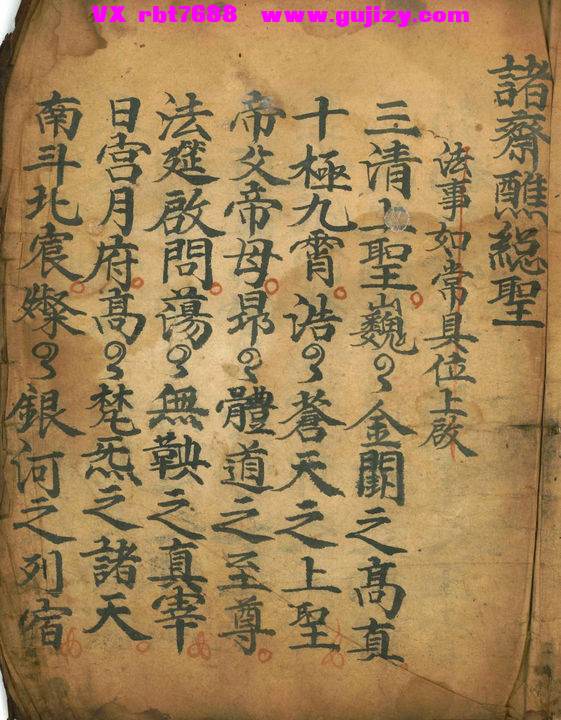 VX rbt7688 www.gujizy.com
諸齋醮縂聖
法事如常具位上啟
三清上聖巍〻金闕之高真
十極九霄浩〻蒼天之上聖
帝父帝母昴〻體道之至尊
法筵啟問蕩〻無鞅之真宰
日宮月府高〻梵炁之諸天
南斗北宸燦〻銀河之列宿